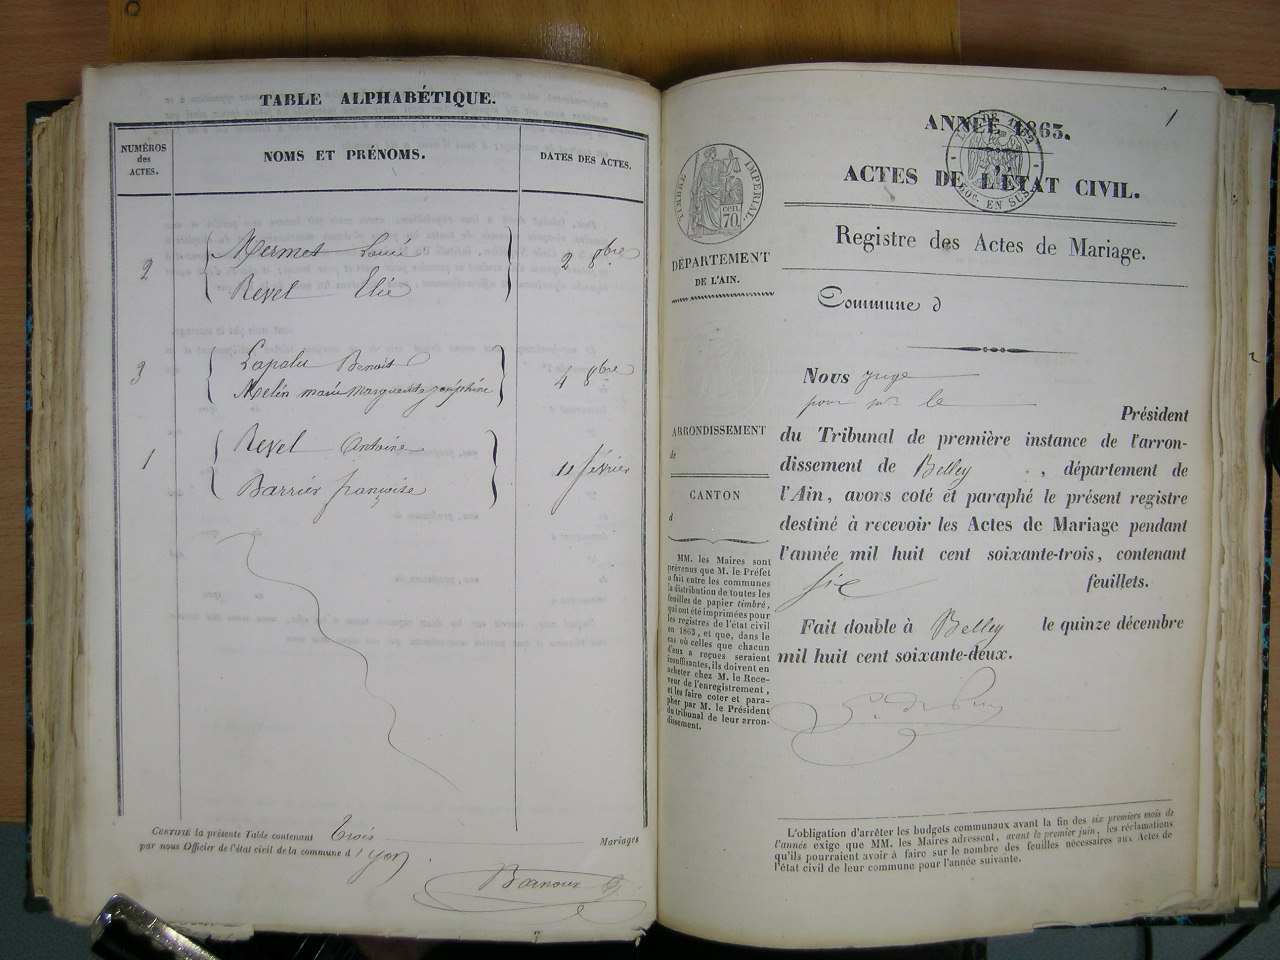 TABLE ALPHABÉTIQUE.
NUMÉROS
des
ACTES.
NOMS ET PRÉNOMS.
DATES DES ACTES.
2
Mermet Louis
Revel Elie
2 8bre
3
Lapalu Benoit
Melin marie Marguerite joséphine
4 8bre
1
Revel Antoine
Barrier françoise
11 février
CERTIFIÉ la présente Table contenant Trois Mariages
par nous Officier de l'état civil de la commune d'Yon
1
ANNÉE 1863.
ACTES DE L'ÉTAT CIVIL.
Registre des Actes de Mariage.
TIMBRE IMPÉRIAL
70 cen.
DÉPARTEMENT
DE L'AIN.
Commune d
Nous juge
pour M. le
Président
du Tribunal de première instance de l'arron-
dissement de Belley, département de
l'Ain, avons coté et paraphé le présent registre
destiné à recevoir les Actes de Mariage pendant
l'année mil huit cent soixante-trois, contenant
six feuillets.
Fait double à Belley le quinze décembre
mil huit cent soixante-deux.
ARRONDISSEMENT
de
CANTON
d
MM. les Maires sont
prévenus que M. le Préfet
a fait entre les communes
la distribution de toutes les
feuilles de papier timbré,
qui ont été imprimées pour
les registres de l'état civil
en 1863, et que, dans le
cas où celles que chacun
d'eux a reçues seraient
insuffisantes, ils doivent en
acheter chez M. le Rece-
veur de l'enregistrement,
et les faire coter et para-
pher par M. le Président
du tribunal de leur arron-
dissement.
L'obligation d'arrêter les budgets communaux avant la fin des six premiers mois de
l'année exige que MM. les Maires adressent, avant le premier juin, les réclamations
qu'ils pourraient avoir à faire sur le nombre des feuilles nécessaires aux Actes de
l'état civil de leur commune pour l'année suivante.